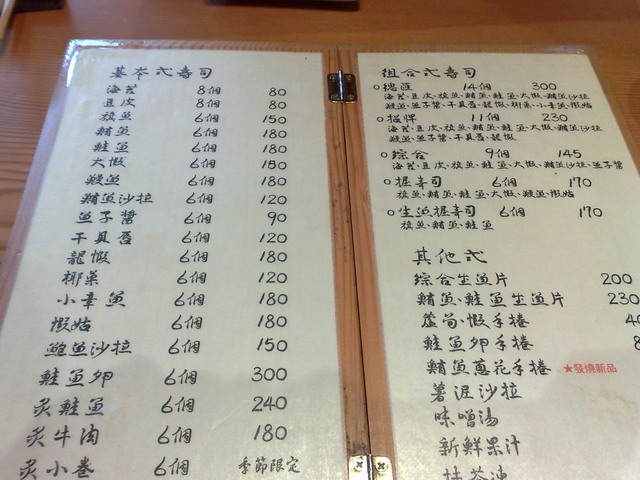 基本式壽司
海苔 8個 80
豆皮 8個 80
旗魚 6個 150
鮪魚 6個 180
鮭魚 6個 180
大蝦 6個 150
鰻魚 6個 180
鮪魚沙拉 6個 120
魚子醬 6個 90
干貝唇 6個 120
龍蝦 6個 180
椰菓 6個 120
小章魚 6個 180
蝦姑 6個 180
鮑魚沙拉 6個 150
鮭魚卵 6個 300
炙鮭魚 6個 240
炙牛肉 6個 180
炙小卷 6個 季節限定
組合式壽司
總匯 14個 300
海苔、豆皮、旗魚、鮪魚、鮭魚、大蝦、鮪魚沙拉
鰻魚、魚子醬、干貝唇、龍蝦、椰菓、小章魚、蝦姑
招牌 11個 230
海苔、豆皮、旗魚、鮪魚、鮭魚、大蝦、鮪魚沙拉
鰻魚、魚子醬、干貝唇、龍蝦
綜合 9個 145
海苔、豆皮、旗魚、鮭魚、大蝦、鮪魚沙拉、魚子醬
握壽司 6個 170
旗魚、鮪魚、鮭魚、大蝦、鰻魚、蝦姑
生魚握壽司 6個 170
旗魚、鮪魚、鮭魚
其他式
綜合生魚片 200
鮪魚、鮭魚生魚片 230
蘆筍、蝦手捲
鮭魚卵手捲
鮪魚蔥花手捲 ★發燒新品
薯泥沙拉
味噌湯
新鮮果汁